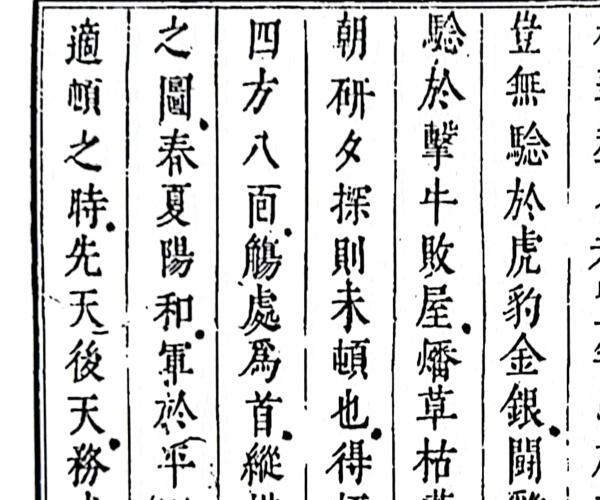 豈無騐於虎豹金銀鬪
騐於擊牛敗屋燔草枯
朝研夕探則未頓也得
四方八面觸處爲首縱
之圖春夏陽和軍於平
適頓之時先天後天務